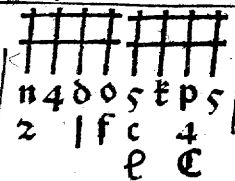 n 4 d o 5 k p 5
2 | f c 4
e C